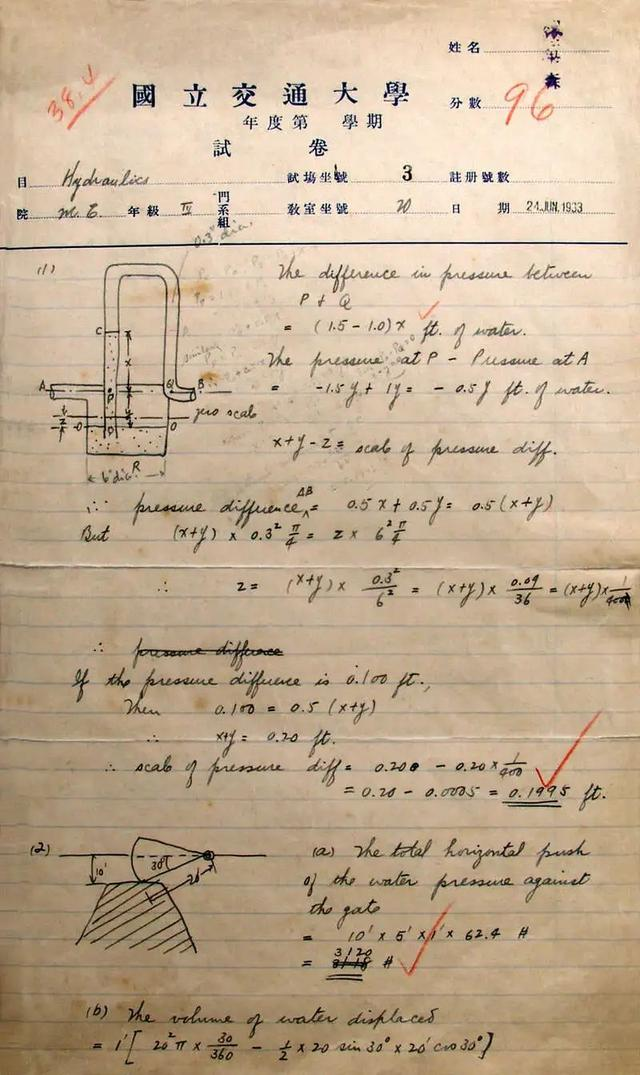 姓名
森
38.4
國立交通大學
分數 96
年度第 學期
試 卷
目 Hydraulics 試場坐號 3 註册號數
院 M.E. 年級 IV 門系組 教室坐號 20 日期 24 JUN. 1933
0.3" dia.
(1)
The difference in pressure between
P & Q
= (1.5 - 1.0) x ft. of water.
The pressure at P - Pressure at A
= -1.5y + 1y = - 0.5y ft. of water.
C
A
P
Q
B
zero scale
z
O
D
O
6" dia.
R
x+y-z = scale of pressure diff.
∴ pressure difference AB = 0.5x + 0.5y = 0.5(x+y)
But (x+y) × 0.3² π/4 = z × 6² π/4
∴ z = (x+y) × 0.3²/6² = (x+y) × 0.09/36 = (x+y) × 1/400
∴ pressure difference
If the pressure difference is 0.100 ft.,
Then 0.100 = 0.5 (x+y)
∴ x+y = 0.20 ft.
∴ scale of pressure diff = 0.200 - 0.20 × 1/400
= 0.20 - 0.0005 = 0.1995 ft.
(2)
10'
30°
20'
(a) The total horizontal push
of the water pressure against
the gate
= 10' × 5' × 1' × 62.4 #
= 3120 #
(b) The volume of water displaced
= 1' [ 20² π × 30/360 - 1/2 × 20 sin 30° × 20' cos 30° ]